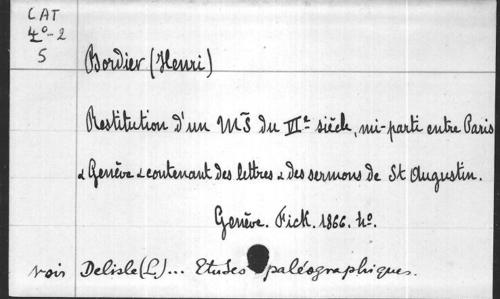 CAT
4º-2
5
Bordier (Henri)
Restitution d'un Ms̃ du VIe siècle, mi-parti entre Paris
& Genève & contenant des lettres & des sermons de St Augustin.
Genève. Fick. 1866. 4º.
voir Delisle (L)... Etudes paléographiques.